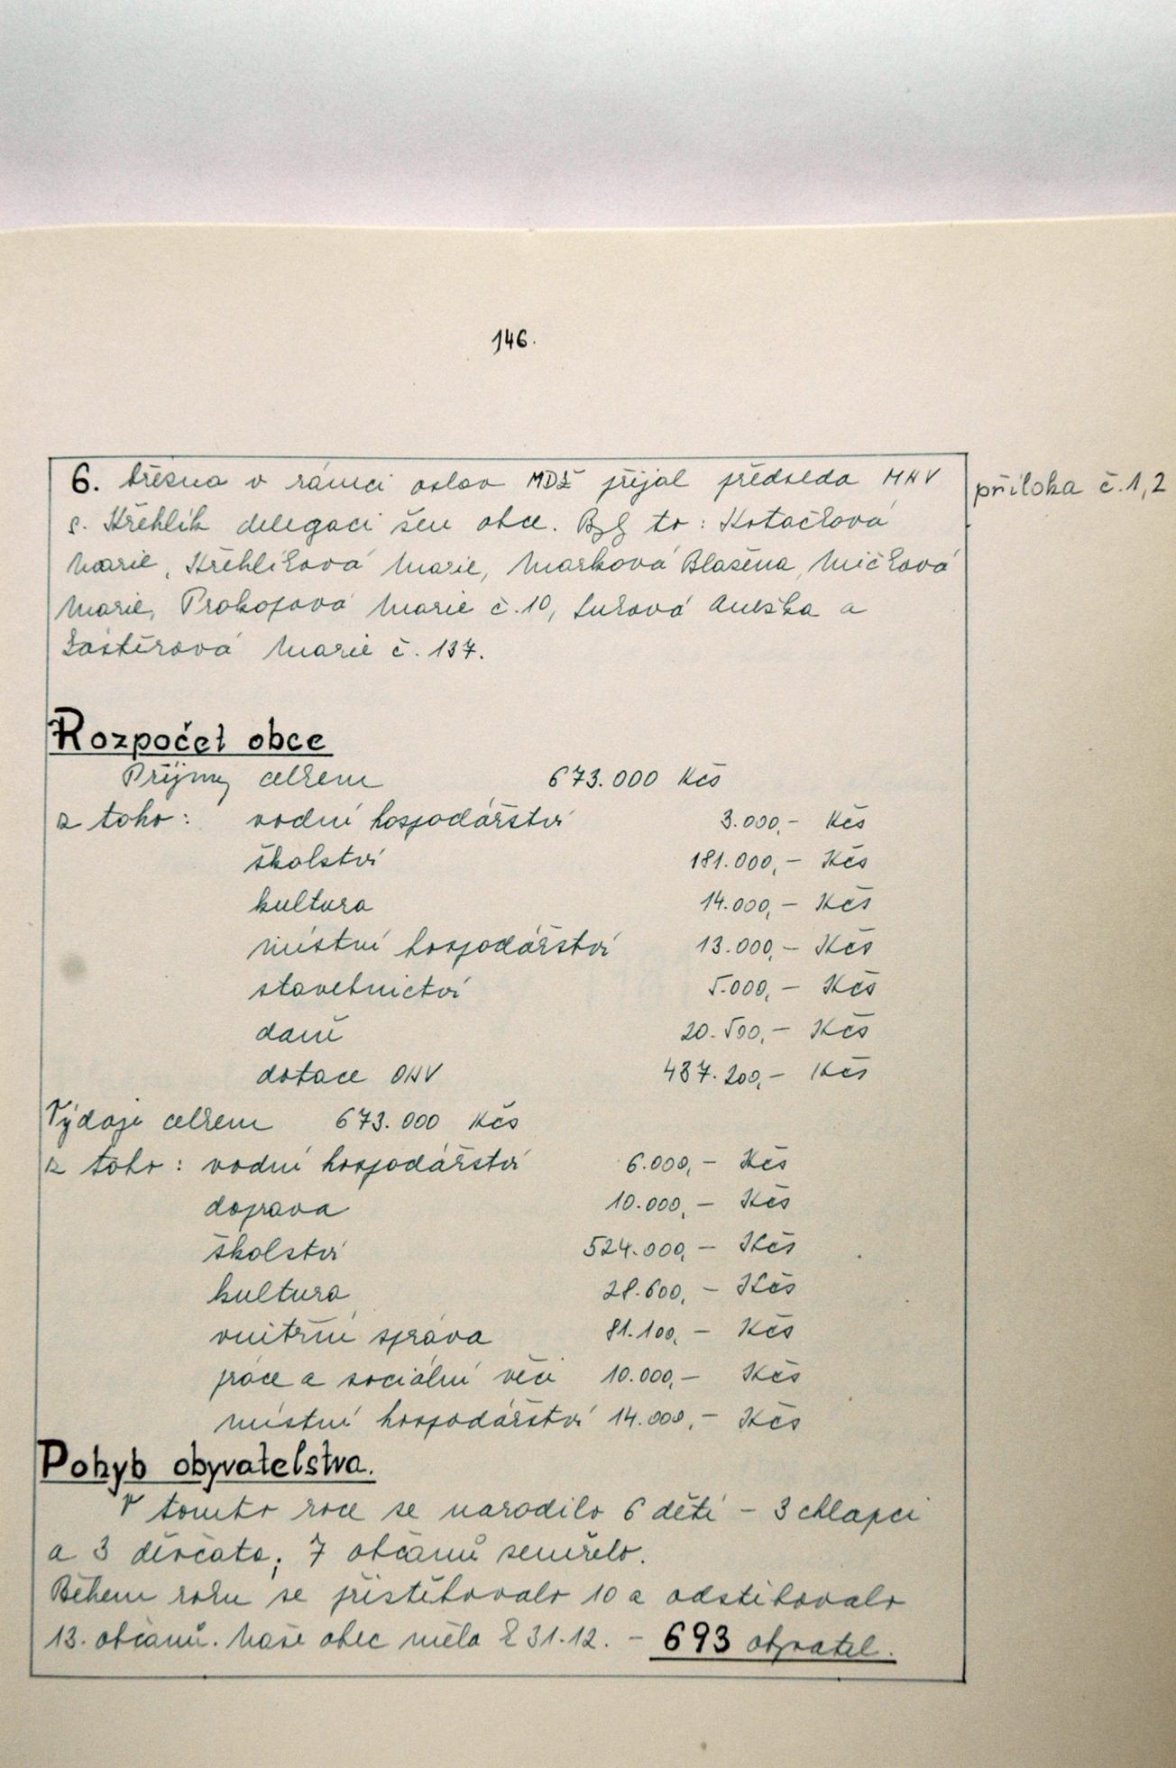 146.
6. března v rámci oslav MDŽ přijal předseda MNV
s. Křehlík delegaci žen obce. Byly to: Kotačková
Marie, Křehlíková Marie, Marková Blažena, Mičková
Marie, Prokopová Marie č. 10, Anežka a
Marie č. 137.
příloha č. 1, 2
Rozpočet obce
Příjmy celkem 673.000 Kčs
z toho: vodní hospodářství 3.000,- Kčs
školství 181.000,- Kčs
kultura 14.000,- Kčs
místní hospodářství 13.000,- Kčs
stavebnictví 5.000,- Kčs
daně 20.500,- Kčs
dotace ONV 437.200,- Kčs
Výdaje celkem 673.000 Kčs
z toho: vodní hospodářství 6.000,- Kčs
doprava 10.000,- Kčs
školství 524.000,- Kčs
kultura 28.600,- Kčs
vnitřní správa 81.100,- Kčs
práce a sociální věci 10.000,- Kčs
místní hospodářství 14.000,- Kčs
Pohyb obyvatelstva.
V tomto roce se narodilo 6 dětí - 3 chlapci
a 3 děvčata; 7 občanů zemřelo.
Během roku se přistěhovalo 10 a odstěhovalo
13. občanů. Naše obec měla k 31.12. - 693 obyvatel.